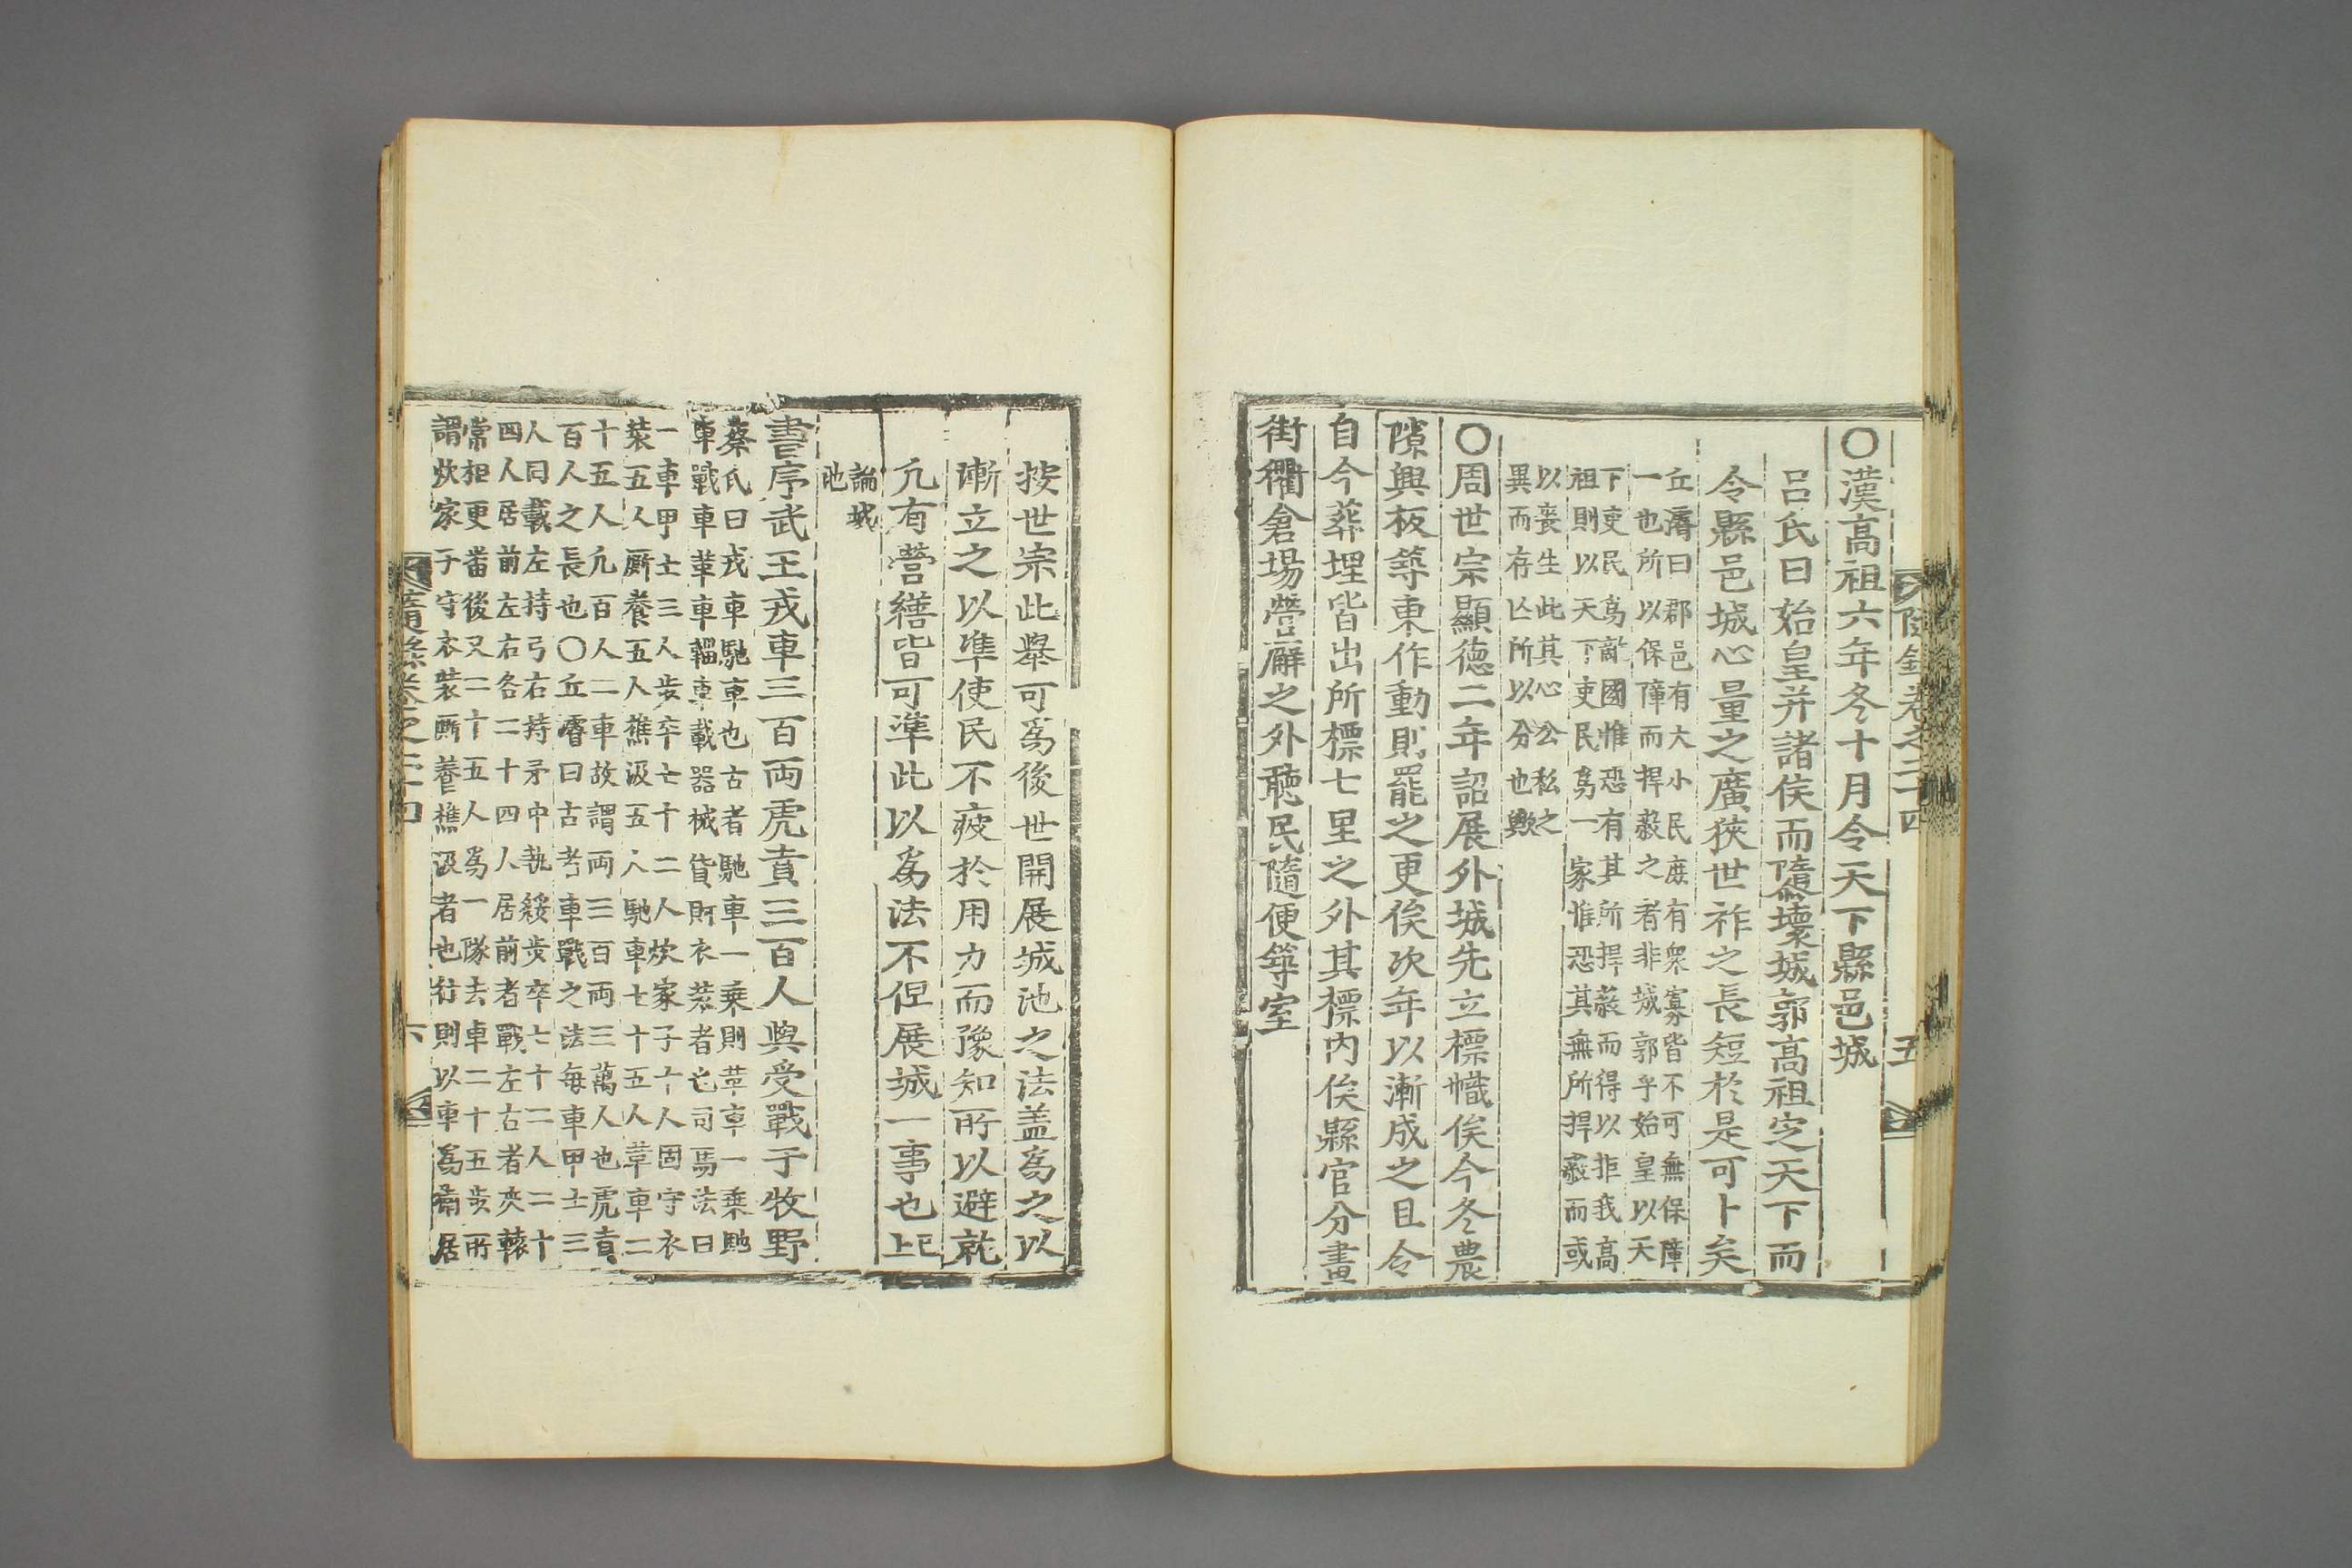 隨錄卷之二十四
五
〇漢高祖六年冬十月令天下縣邑城
呂氏曰始皇并諸侯而隳壞城郭高祖定天下而
令縣邑城心量之廣狹世祚之長短於是可卜矣
丘濬曰郡邑有大小民庶有衆寡皆不可無保障
一也所以保障而捍蔽之者非城郭乎始皇以天
下吏民爲敵國惟恐有其所捍蔽而得以拒我高
祖則以天下吏民爲一家惟恐其無所捍蔽而或
以喪生此其心公私之
異而存亾所以分也歟
〇周世宗顯德二年詔展外城先立標幟俟今冬農
隙興板築東作動則罷之更俟次年以漸成之且令
自今葬埋皆出所標七里之外其標內俟縣官分畫
街衢倉場營廨之外聽民隨便築室
按世宗此擧可爲後世開展城池之法盖爲之以
漸立之以準使民不疲於用力而豫知所以避就
凡有營繕皆可準此以爲法不但展城一事也已上
論城
池
書序武王戎車三百両虎賁三百人與受戰于牧野
蔡氏曰戎車馳車也古者馳車一乗則革車一乗馳
車戰車革車輜車載器械貨財衣裘者也司馬法曰
一車甲士三人步卒七十二人炊家子十人固守衣
裝五人廝養五人樵汲五人馳車七十五人革車二
十五人凡百人二車故謂両三百両三萬人也虎賁
百人之長也〇丘濬曰古者車戰之法每車甲士三
人同載左持弓右持矛中執綏步卒七十二人二十
四人居前左右各二十四人居前者戰左右者夾轅
常相更番後又二十五人爲一隊去車二十五步所
謂炊家子守衣裝廝養樵汲者也行則以車爲衛居
隨錄卷之二十四
六